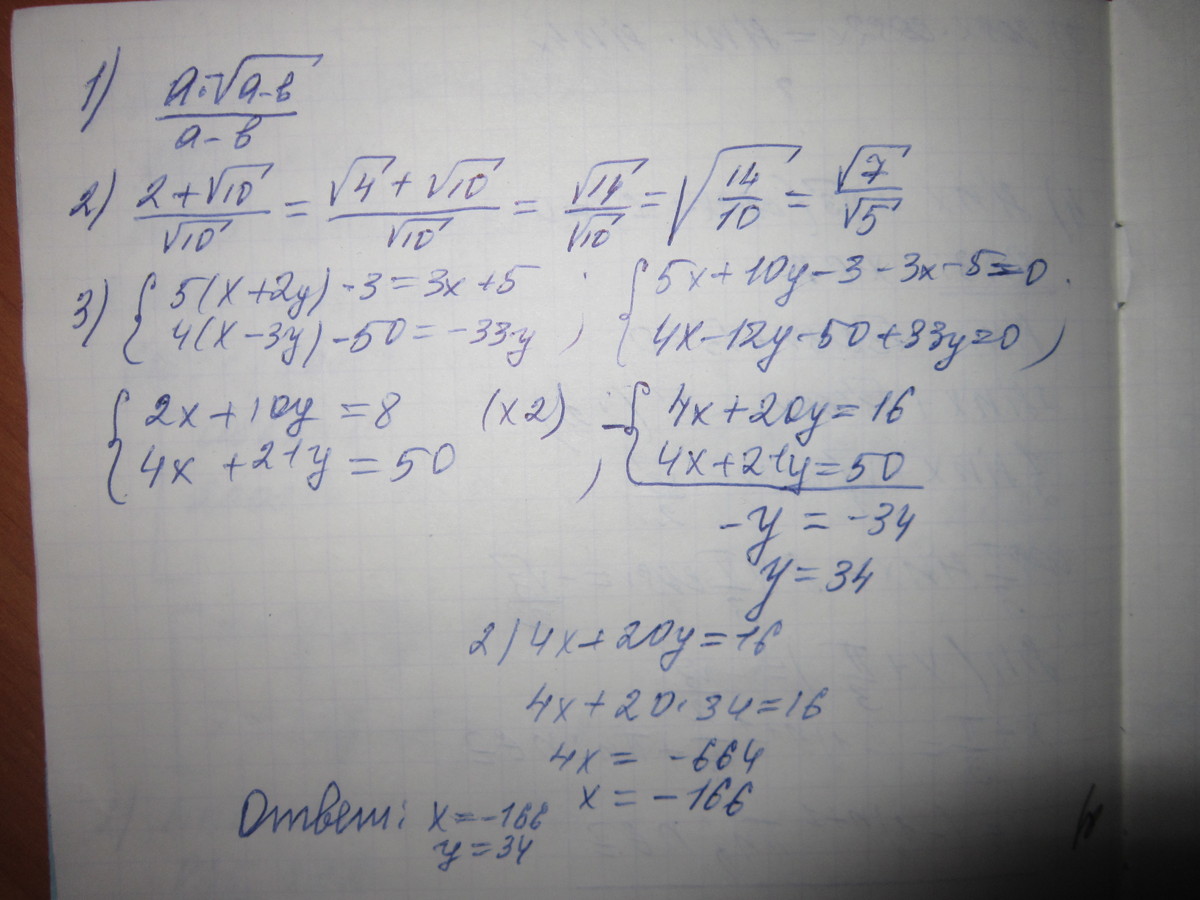 1) a·√(a-b) / (a-b)
2) (2+√10)/√10 = (√4+√10)/√10 = √14/√10 = √(14/10) = √7/√5
3) { 5(x+2y)-3=3x+5 ; { 5x+10y-3-3x-5=0 .
4(x-3y)-50=-33y ; 4x-12y-50+33y=0 )
{ 2x+10y=8 (x2) - { 4x+20y=16
4x+21y=50 , 4x+21y=50
-y=-34
y=34
2) 4x+20y=16
4x+20·34=16
4x=-664
x=-166
Ответ: x=-166
y=34